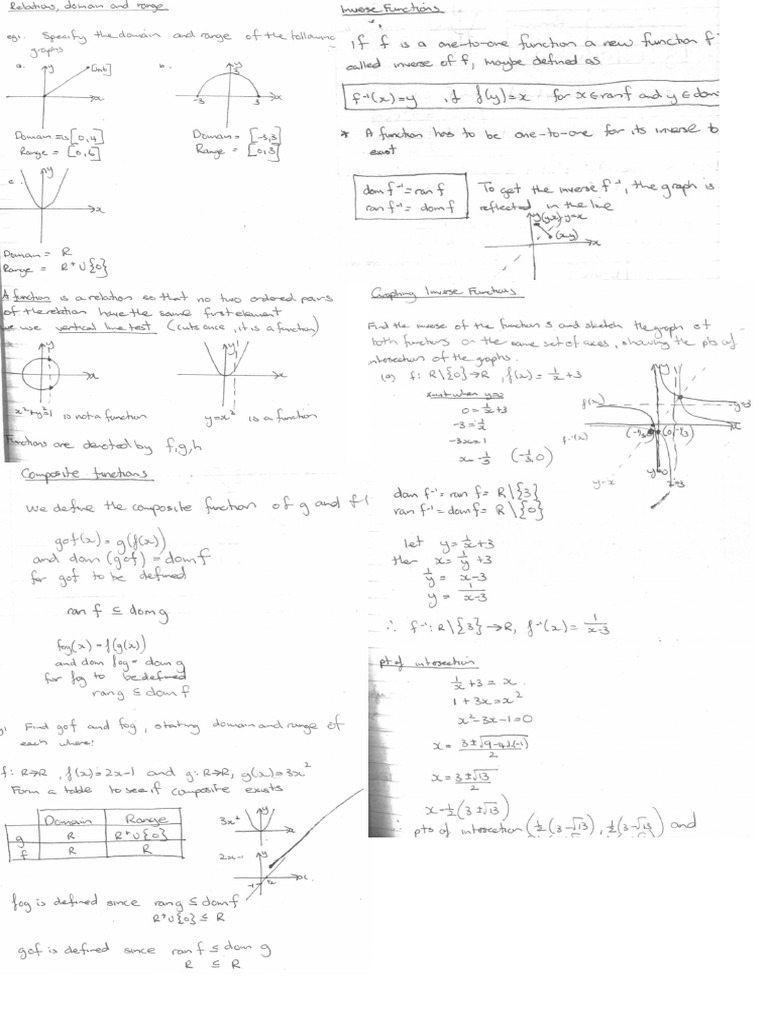 Relations, domain and range
eg1. Specify the domain and range of the following
graphs
a.
y
x
b.
y
3
-3
3
x
Domain = [0,4]
Range = [0,6]
Domain = [-3,3]
Range = [0,3]
c.
y
x
Domain = R
Range = R⁺∪{0}
A function is a relation so that no two ordered pairs
of the relation have the same first element
we use vertical line test (cuts once, it is a function)
y
x
y
x
x²+y²=1 is not a function
y=x² is a function
Functions are denoted by f,g,h
Composite functions
We define the composite function of g and f
gof(x) = g(f(x))
and dom (gof) = dom f
for gof to be defined
ran f ⊆ dom g
fog(x) = f(g(x))
and dom fog = dom g
for fog to be defined
ran g ⊆ dom f
Find gof and fog, stating domain and range of
each where:
f: R→R, f(x)=2x-1 and g: R→R, g(x)=3x²
Form a table to see if composite exists
Domain Range
g R R⁺∪{0}
f R R
3x²
y
x
2x-1
y
x
fog is defined since ran g ⊆ dom f
R⁺∪{0} ⊆ R
gof is defined since ran f ⊆ dom g
R ⊆ R
Inverse Functions
If f is a one-to-one function a new function f⁻
called inverse of f, maybe defined as
f⁻¹(x)=y if f(y)=x for x∈ranf and y∈dom
* A function has to be one-to-one for its inverse to
exist
dom f⁻¹ = ran f
ran f⁻¹ = dom f
To get the inverse f⁻¹, the graph is
reflected in the line
y (y,x) y=x
(x,y)
x
Graphing Inverse Functions
Find the inverse of the functions and sketch the graph of
both functions on the same set of axes, showing the pts of
intersection of the graphs.
(a) f: R\{0}→R, f(x) = 1/x +3
x-int when y=0
0 = 1/x +3
-3 = 1/x
-3x = 1
x = -1/3 (-1/3,0)
f(x)
y
y=3
x
(-1/3,0)
(0,-1/3)
f⁻¹(x)
y=x
x=3
dom f⁻¹ = ran f = R\{3}
ran f⁻¹ = dom f = R\{0}
let y = 1/x +3
then x = 1/y +3
1/y = x-3
y = 1/(x-3)
∴ f⁻¹: R\{3}→R, f⁻¹(x) = 1/(x-3)
pt of intersection
1/x +3 = x
1+3x = x²
x²-3x-1=0
x = (3±√(9-4(1)(-1)))/2
x = (3±√13)/2
x = ½(3±√13)
∴ pts of intersection (½(3-√13), ½(3-√13)) and